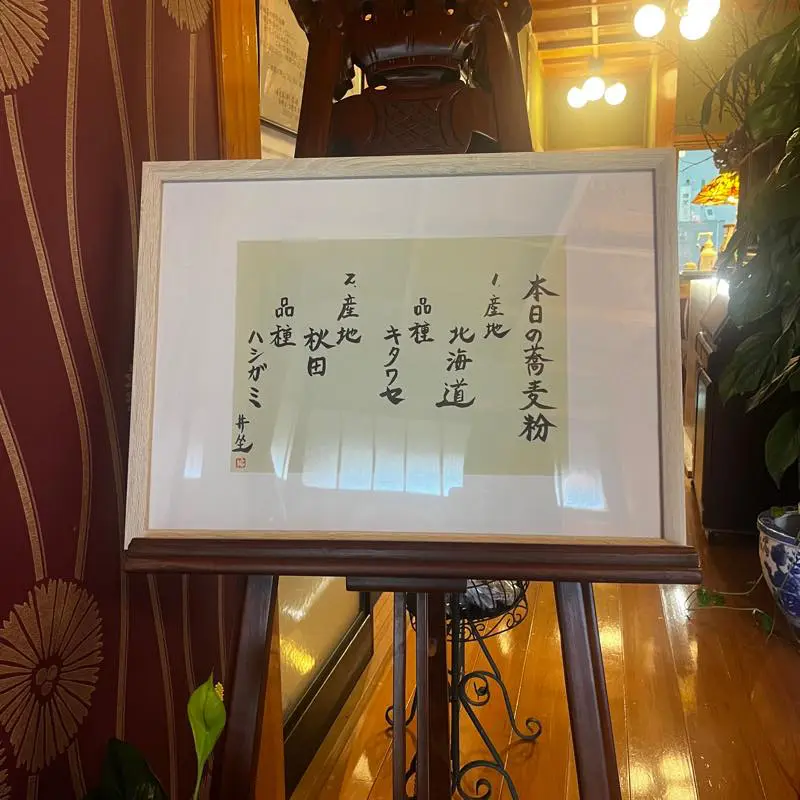 本日の蕎麦粉
1.産地
北海道
品種
キタワセ
2.産地
秋田
品種
ハシガミ